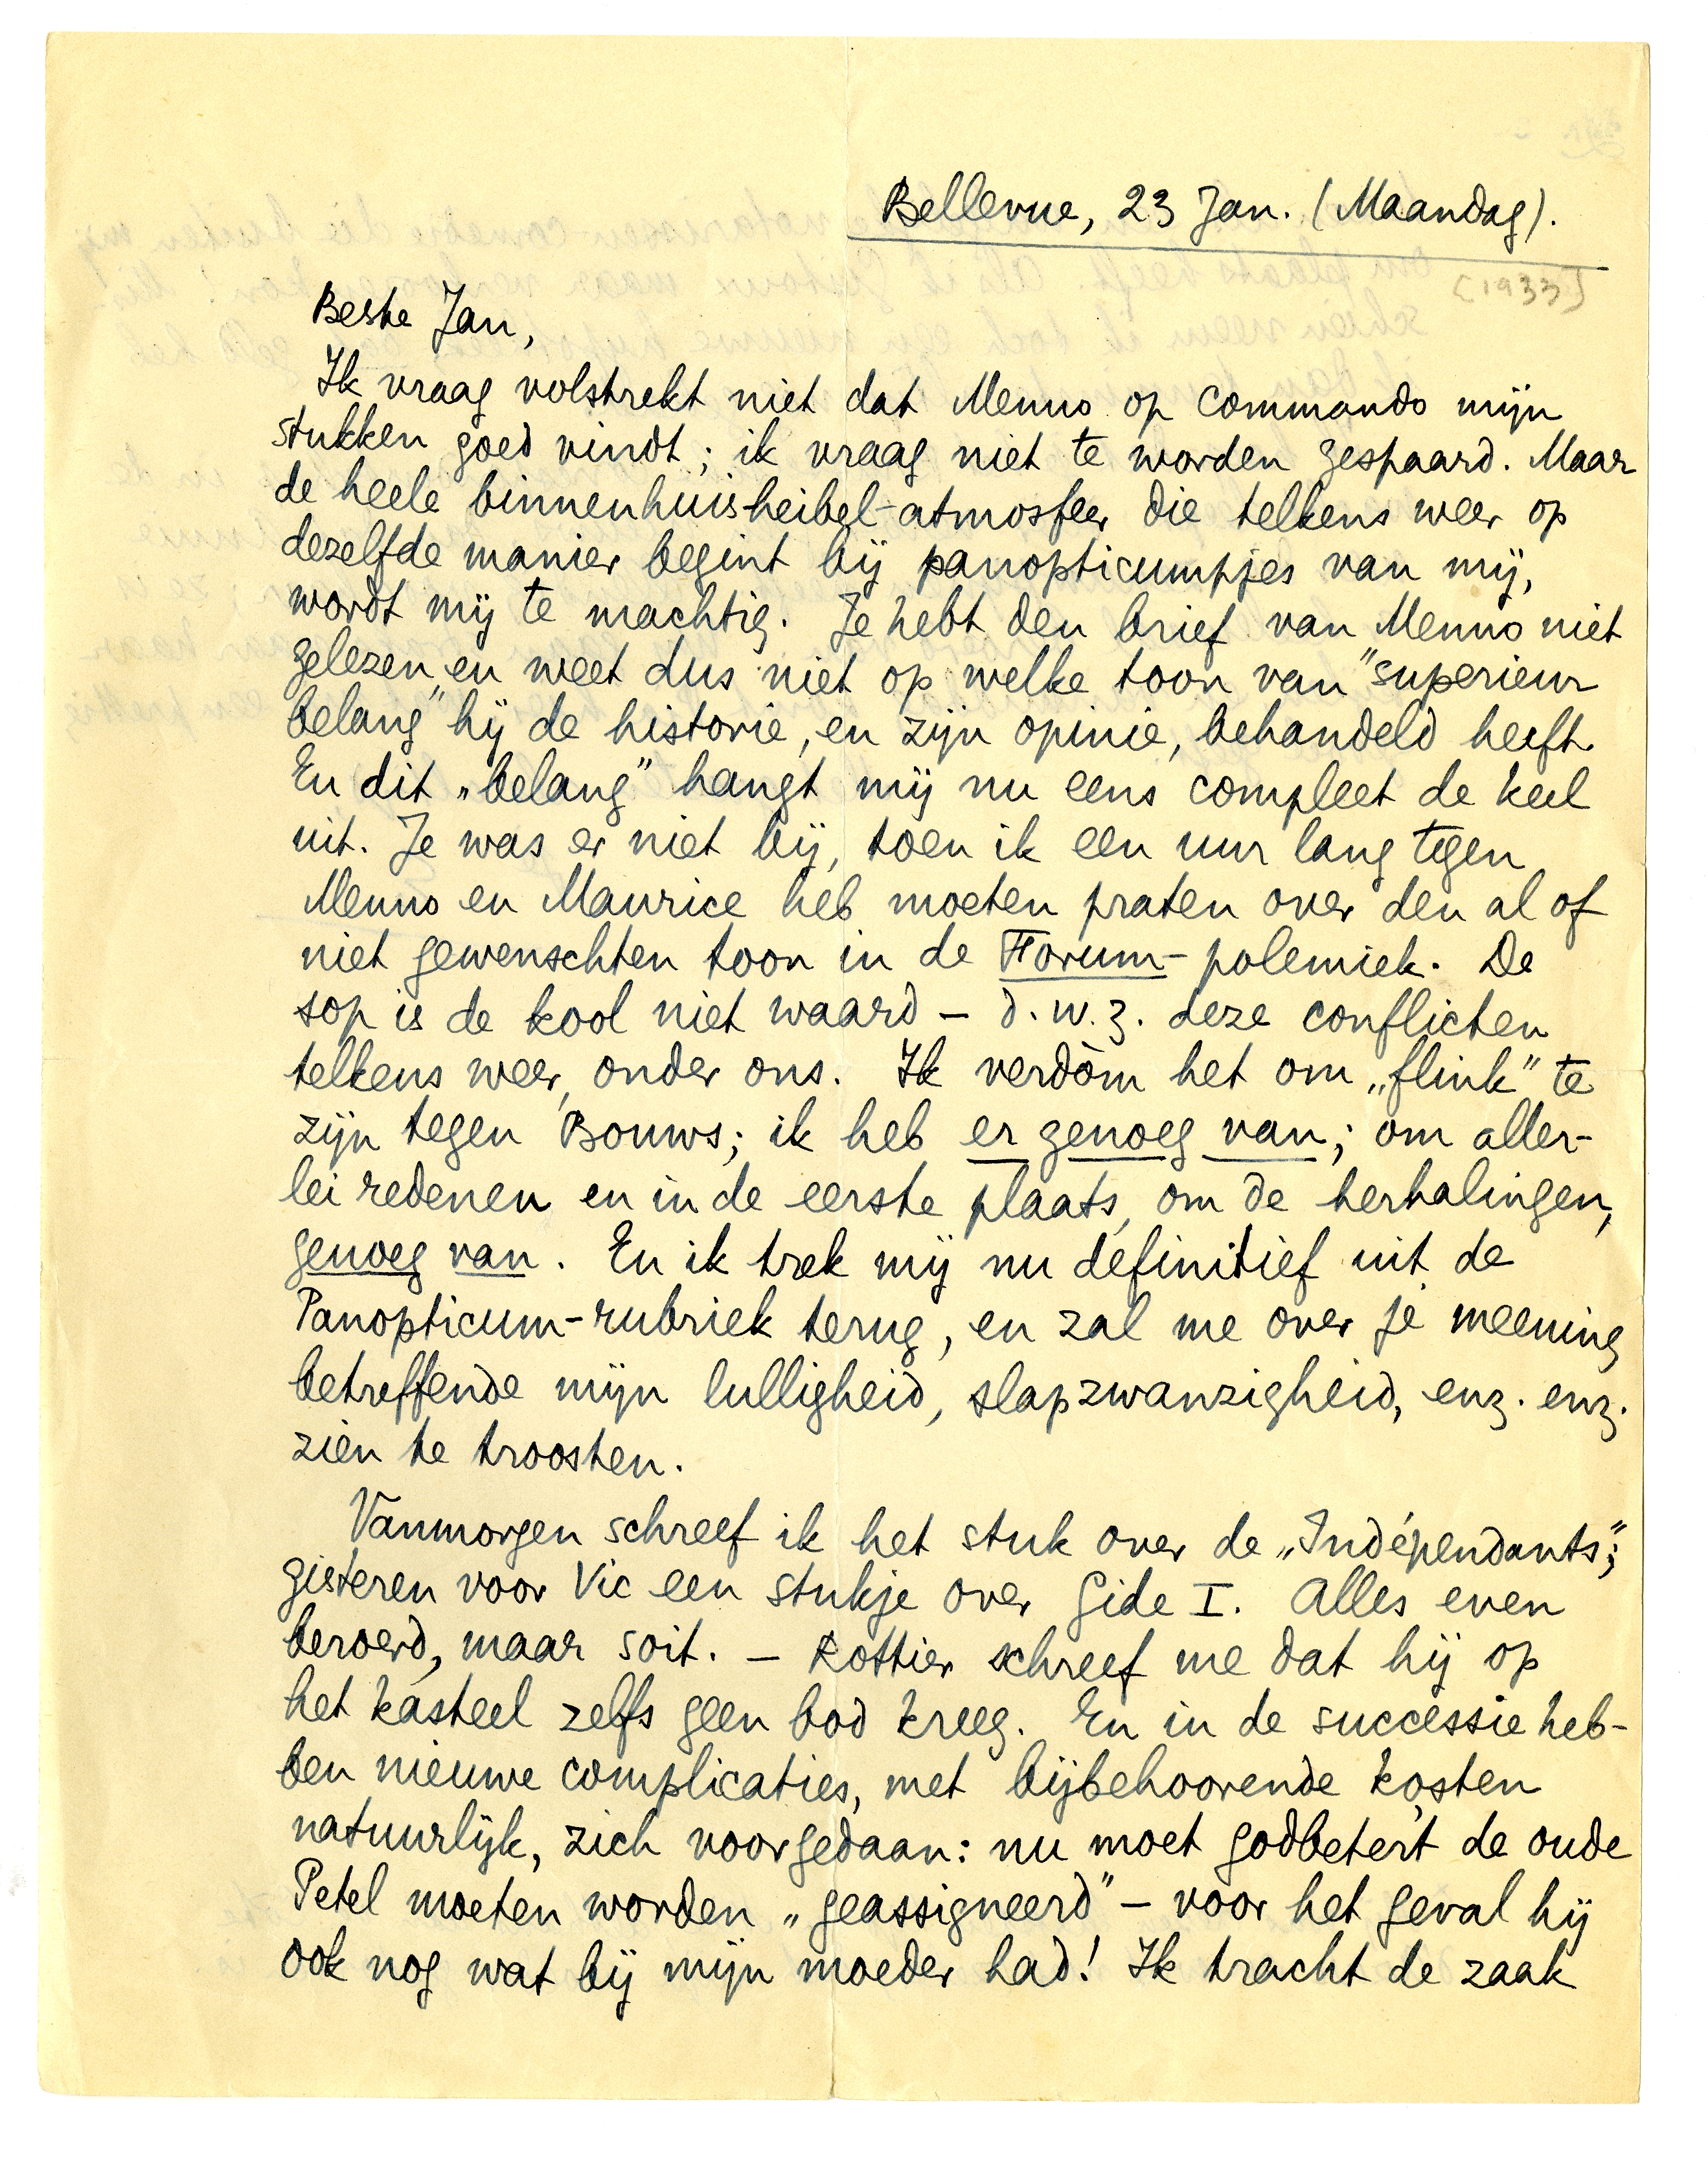 Bellevue, 23 Jan. (Maandag).
[1933]
Beste Jan,
Ik vraag volstrekt niet dat Menno op commando mijn
stukken goed vindt; ik vraag niet te worden gespaard. Maar
de heele binnenhuisheibel-atmosfeer die telkens weer op
dezelfde manier begint bij panopticumpjes van mij,
wordt mij te machtig. Je hebt den brief van Menno niet
gelezen en weet dus niet op welke toon van "superieur
belang" hij de historie, en zijn opinie, behandeld heeft.
En dit „belang" hangt mij nu eens compleet de keel
uit. Je was er niet bij, toen ik een uur lang tegen
Menno en Maurice heb moeten praten over den al of
niet gewenschten toon in de Forum-polemiek. De
sop is de kool niet waard – d.w.z. deze conflicten
telkens weer, onder ons. Ik verdòm het om „flink" te
zijn tegen Bouws; ik heb er genoeg van; om aller-
lei redenen en in de eerste plaats, om de herhalingen,
genoeg van. En ik trek mij nu definitief uit de
Panopticum-rubriek terug, en zal me over je meening
betreffende mijn lulligheid, slapzwanzigheid, enz. enz.
zien te troosten.
Vanmorgen schreef ik het stuk over de „Indépendants";
gisteren voor Vic een stukje over Gide I. Alles even
beroerd, maar soit. – Rottier schreef me dat hij op
het kasteel zelfs geen bod kreeg. En in de successie heb-
ben nieuwe complicaties, met bijbehoorende kosten
natuurlijk, zich voorgedaan: nu moet godbetert de oude
Petel moeten worden „geassigneerd" – voor het geval hij
ook nog wat bij mijn moeder had! Ik tracht de zaak